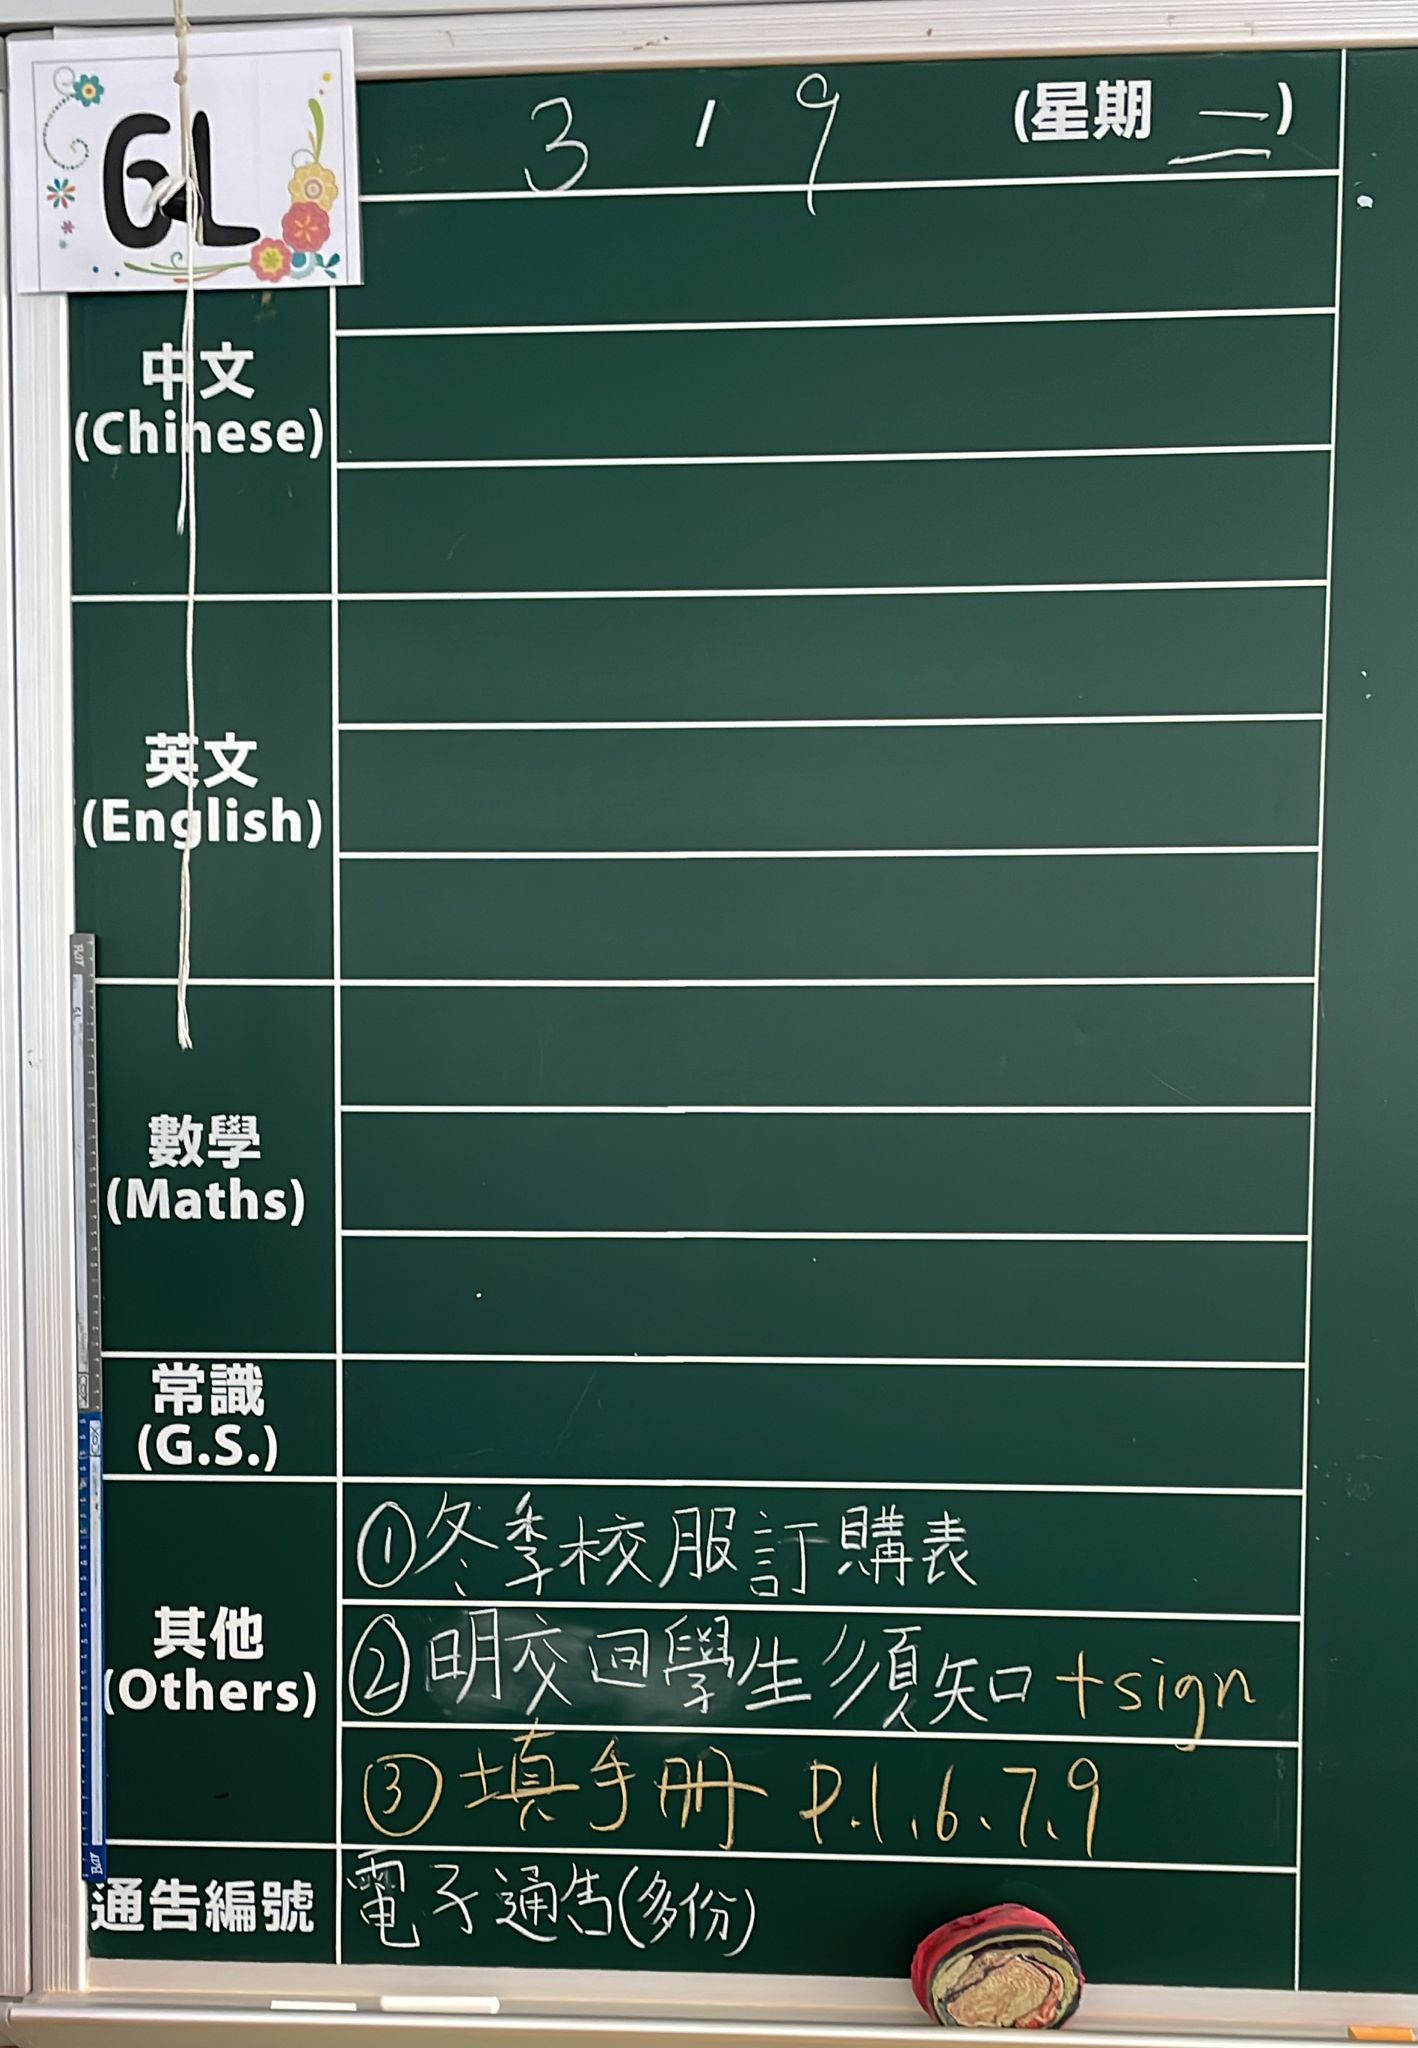 6L
3 / 9 (星期 二)
中文
(Chinese)
英文
(English)
數學
(Maths)
常識
(G.S.)
其他
(Others)
①冬季校服訂購表
②明交回學生須知 +sign
③填手冊 P.1、6、7、9
通告編號
電子通告(多份)